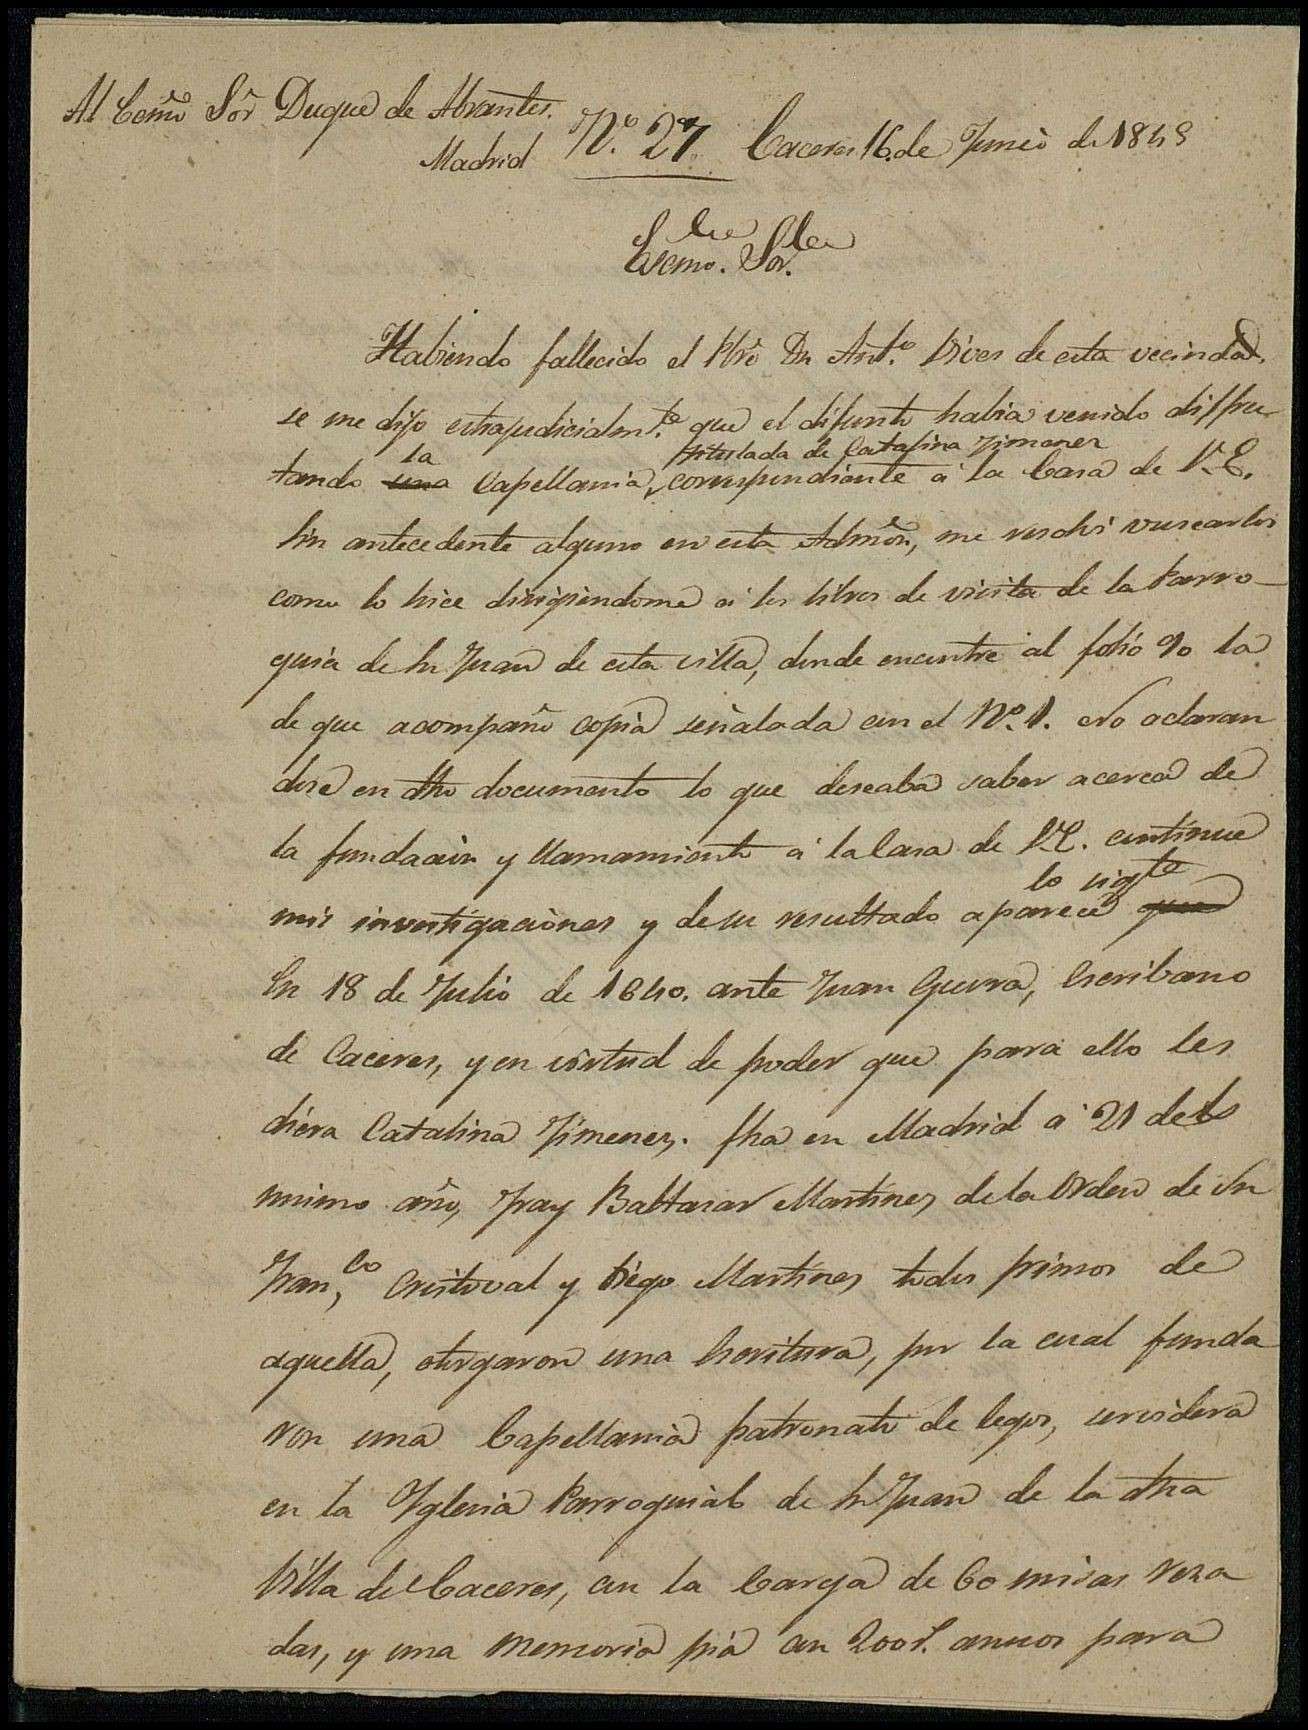 Al Exmo Sör Duque de Abrantes.
Madrid
N.º 27 Caceres 16. de Junio de 1848
Exmo. Sor.
Habiendo fallecido el Pbrô Dn Ant.º Vives de esta vecindad,
se me dijo estrajudicialm.te que el difunto habia venido disfru-
la titulada de Catalina Jimenez
tando una Capellania, correspondiente á la Casa de V.E.
Sin antecedente alguno en esta Admôn, me resolví vuscarlos
como lo hice dirigiendome á los libros de visita de la Parro-
quia de Sn Juan de esta villa, donde encontré al folio 90 la
de que acompaño copia señalada con el Nº. 1. No aclaran
dose en dho documento lo que deseaba saber acerca de
la fundacion y llamamiento á la Casa de V.E. continue
lo sigte
mis investigaciones y de su resultado aparece que
En 18 de Julio de 1640. ante Juan Guerra, Escribano
de Caceres, y en virtud de poder que para ello les
diera Catalina Jimenez. fha en Madrid á 21 del
mismo año, Fray Baltasar Martinez de la Orden de Sn
Fran,co Cristoval y Diego Martinez todos primos de
aquella, otorgaron una Escritura, por la cual funda
ron una Capellania patronato de legos, servidera
en la Yglesia Parroquial de Sn Juan de la dha
Villa de Caceres, con la Carga de 60 misas reza
das, y una memoria pia con 200 r. anuos para